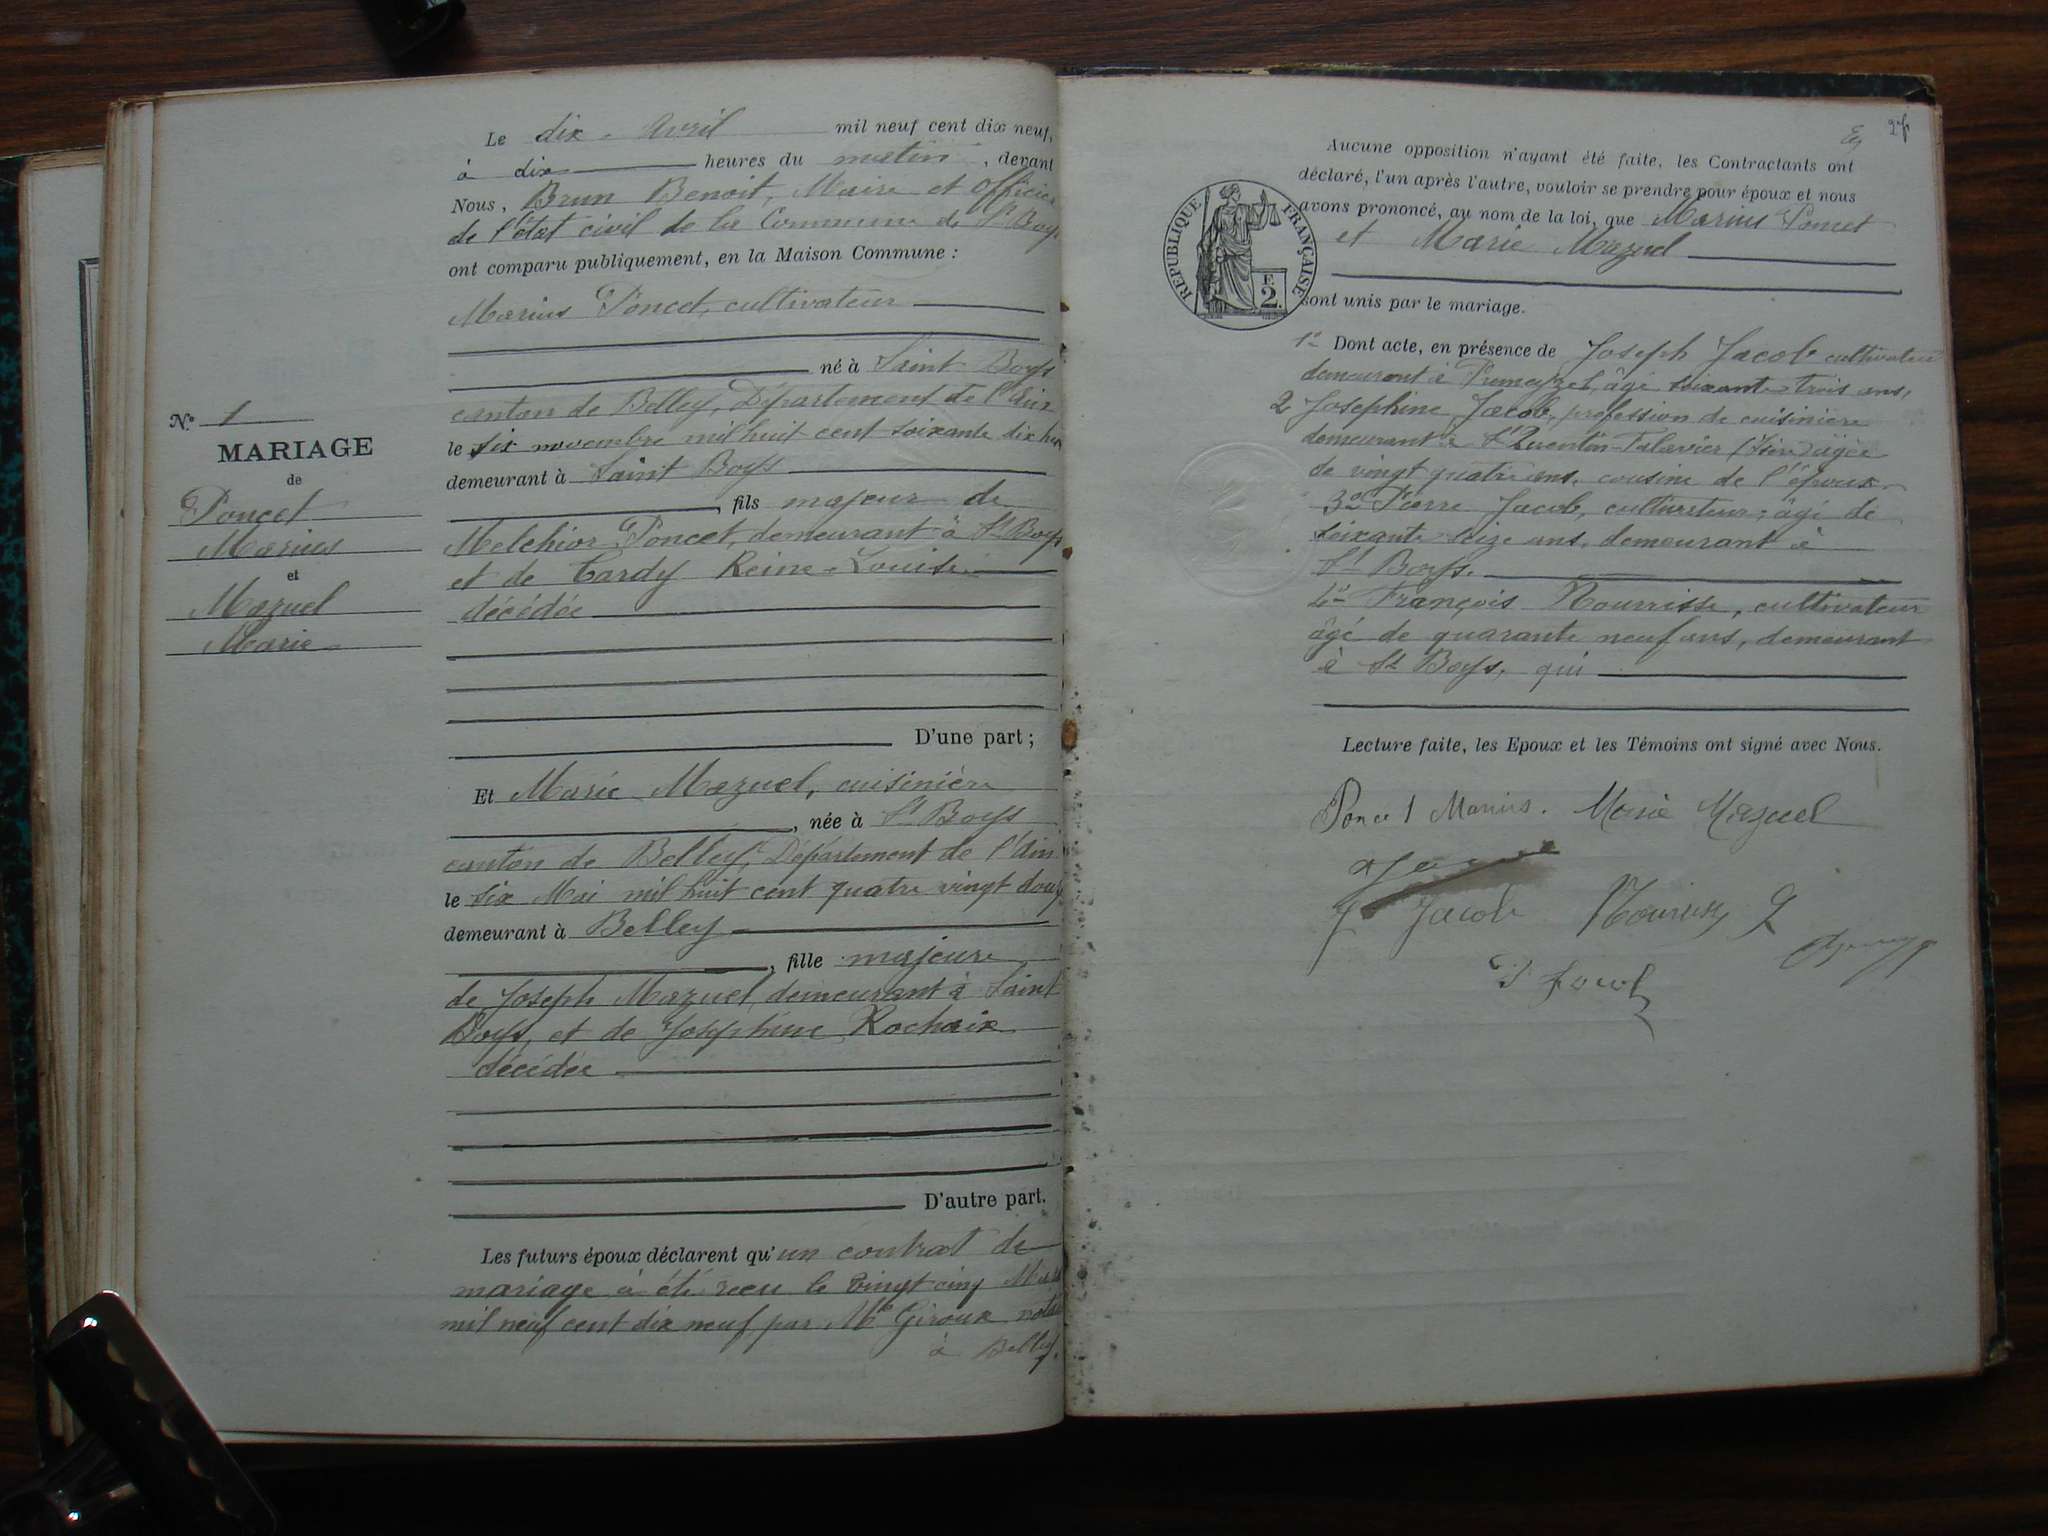 Le dix Avril mil neuf cent dix neuf,
à dix heures du matin, devant
Nous, Brun Benoit, Maire et Officier
de l'état civil de la Commune de St Boys
ont comparu publiquement, en la Maison Commune :
Marius Poncet, cultivateur
né à Saint Boys
canton de Belley, Département de l'Ain
le six novembre mil huit cent soixante dix huit
demeurant à Saint Boys
, fils majeur de
Melchior Poncet, demeurant à St Boys
et de Tardy Reine-Louise
décédée
D'une part ;
N° 1
MARIAGE
de
Poncet
Marius
et
Mazuel
Marie
Et Marie Mazuel, cuisinière
, née à St Boys
canton de Belley, Département de l'Ain
le six Mai mil huit cent quatre vingt douze
demeurant à Belley
, fille majeure
de Joseph Mazuel, demeurant à Saint
Boys, et de Joséphine Rochaix
décédée
D'autre part.
Les futurs époux déclarent qu'un contrat de
mariage à été recu le vingt cinq Mars
mil neuf cent dix neuf par Me Giroux notaire
à Belley.
27
Aucune opposition n'ayant été faite, les Contractants ont
déclaré, l'un après l'autre, vouloir se prendre pour époux et nous
avons prononcé, au nom de la loi, que Marius Poncet
et Marie Mazuel
sont unis par le mariage.
REPUBLIQUE FRANÇAISE
F.
2.
1° Dont acte, en présence de Joseph Jacob cultivateur
demeurant à Premeyzel, âgé soixante-trois ans,
2 Josephine Jacob, profession de cuisinière
demeurant à St Quentin-Falavier (Isère) âgée
de vingt quatre ans, cousine de l'époux
3° Pierre Jacob, cultivateur, âgé de
soixante seize ans, demeurant à
St Boys.
4° François Nourrisse, cultivateur
âgé de quarante neuf ans, demeurant
à St Boys, qui
Lecture faite, les Epoux et les Témoins ont signé avec Nous.
Poncet Marius. Marie Mazuel
J Jacob
P Jacob